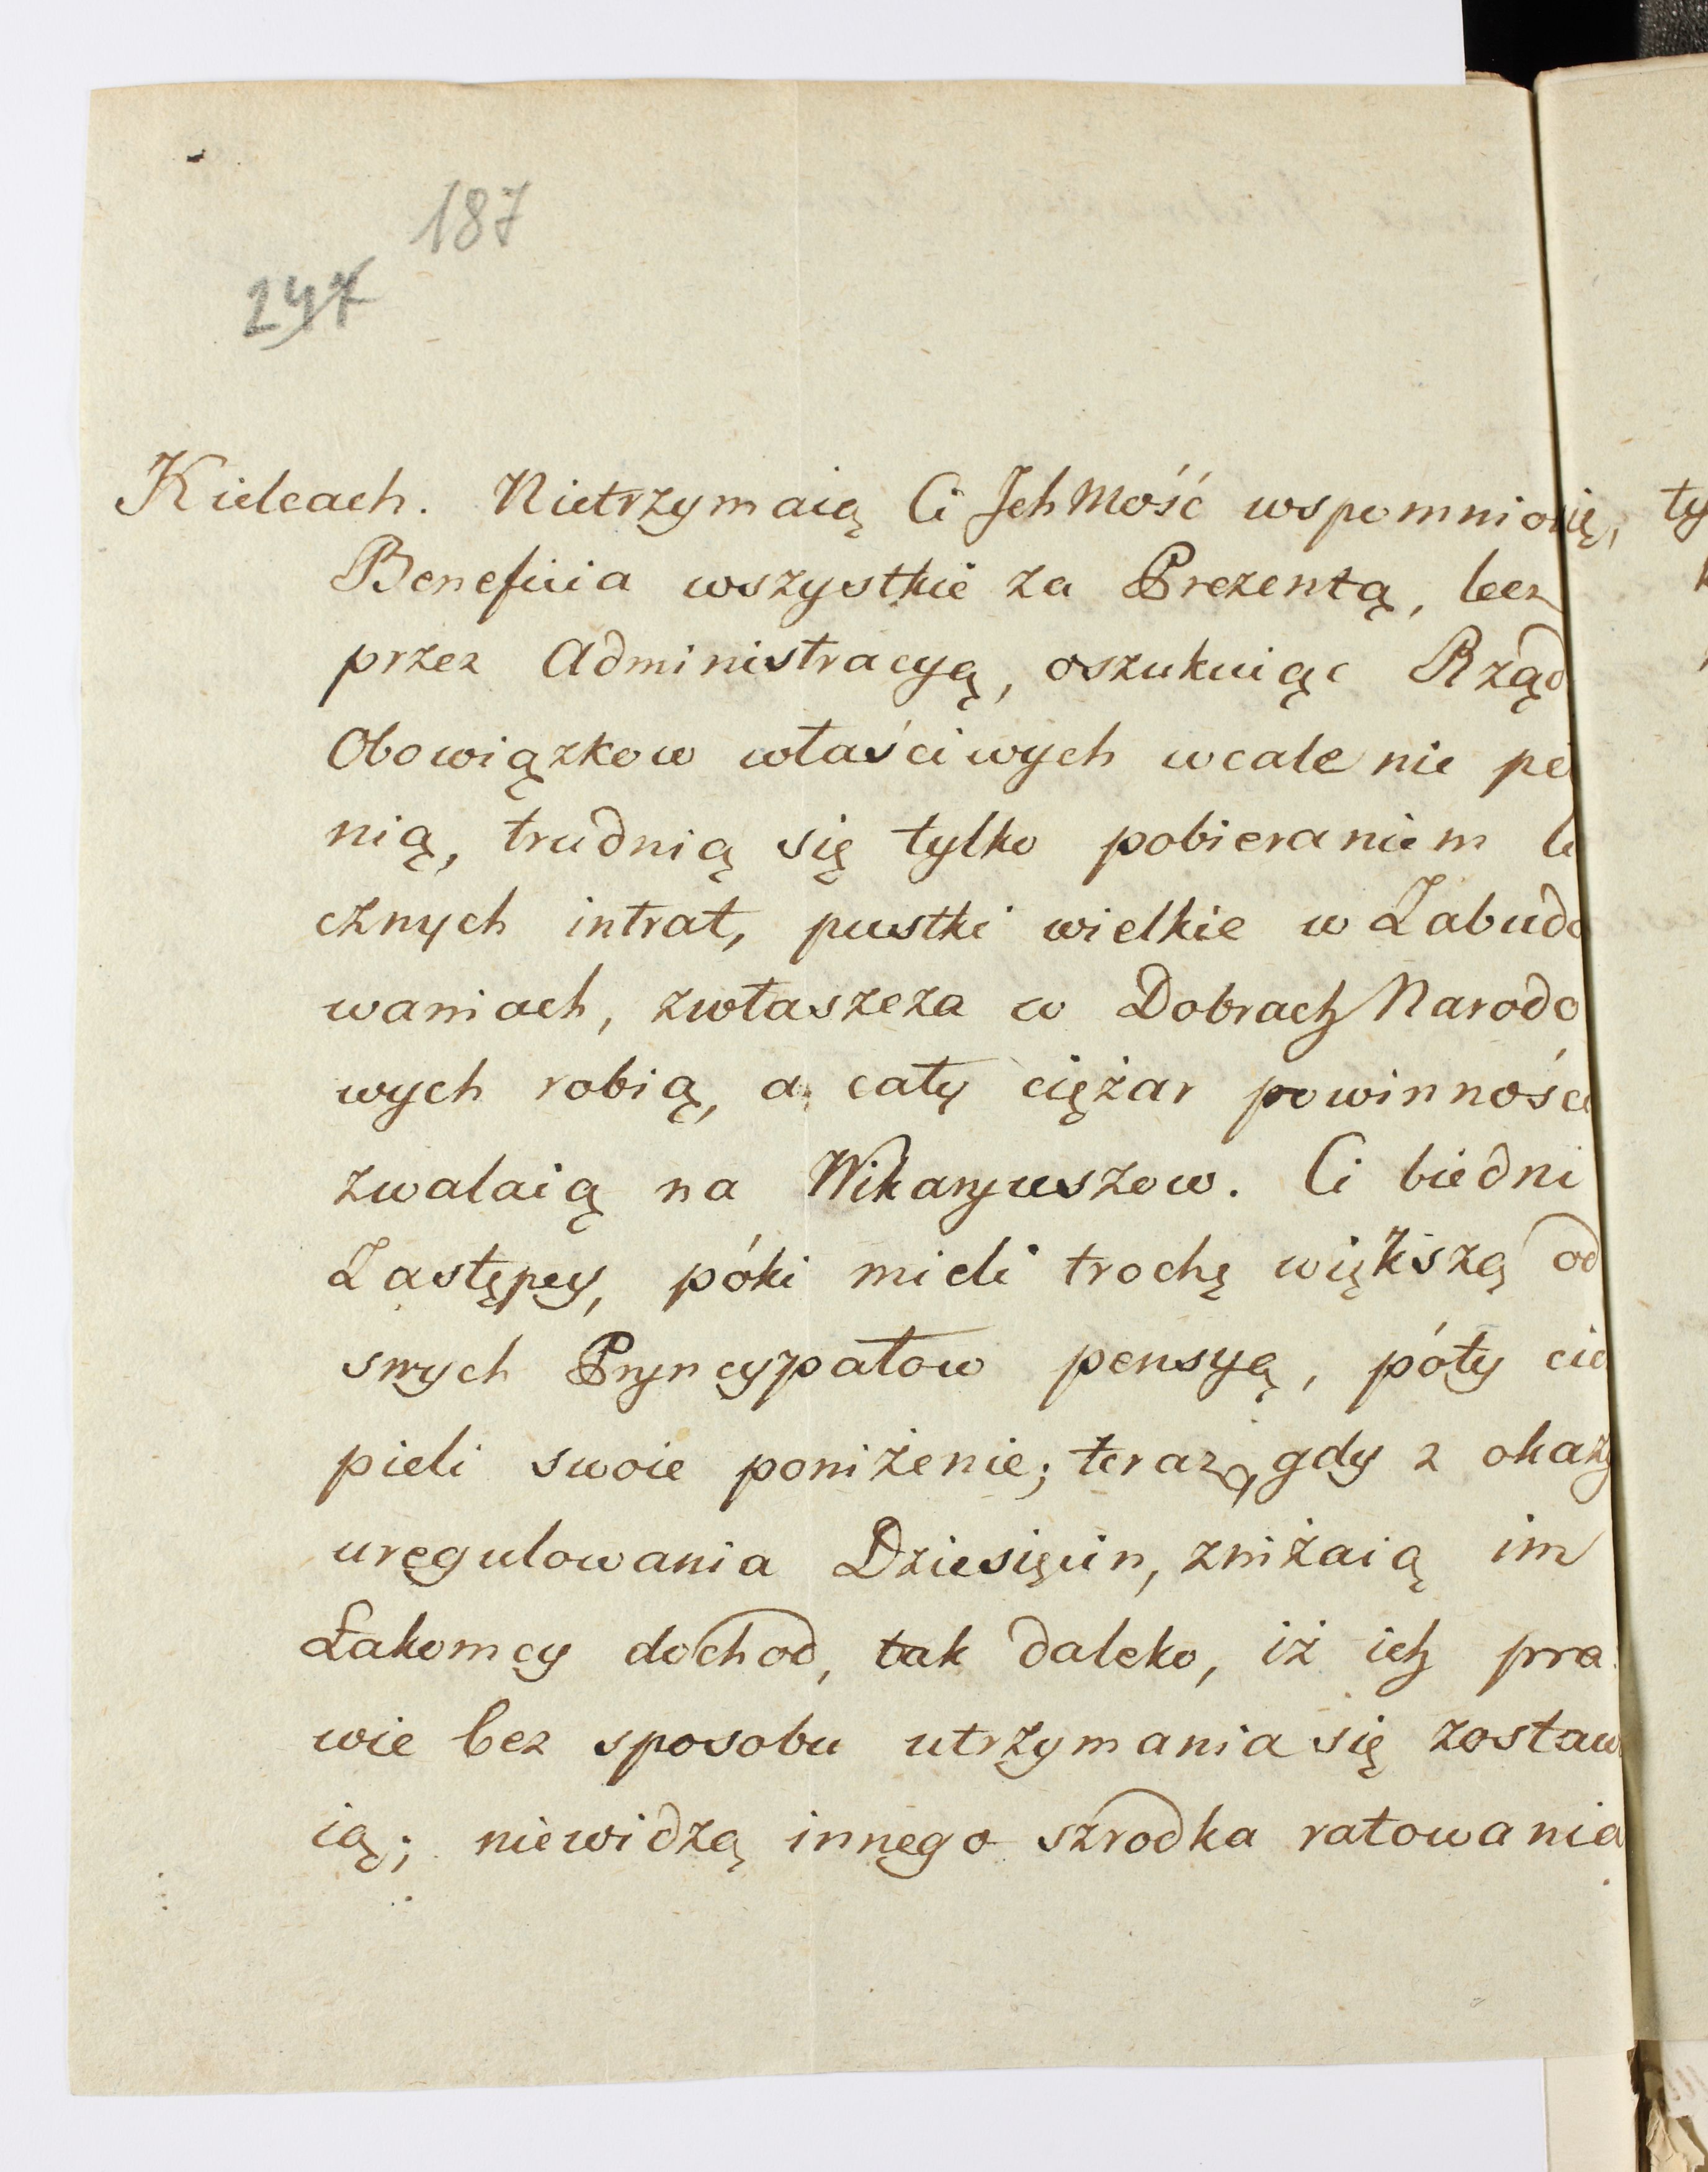 187
247
Kielcach. Nietrzymaią Ci Ich Mość wspomnionię,
Beneficia wszystkie za Prezentą, lecz
przez Administracyą, oszukuiąc Rząd
Obowiązkow właściwych wcale nie peł
nią, trudnią się tylko pobieraniem li
cznych intrat, pustki wielkie w Zabudo
waniach, zwłaszcza w Dobrach Narodo
wych robią, a cały ciężar powinności
zwalaią na Wikaryuszow. Ci biedni
Zastępcy, póki mieli trochę większą od
swych Pryncypałow pensyą, póty cier
pieli swoie poniżenie; teraz, gdy z okazy
uregulowania Dziesięcin, zniżaią im
Łakomcy dochod, tak daleko, iż ich pra
wie bez sposobu utrzymania się zostaw
ią; niewidzą innego szrodka ratowania
ty